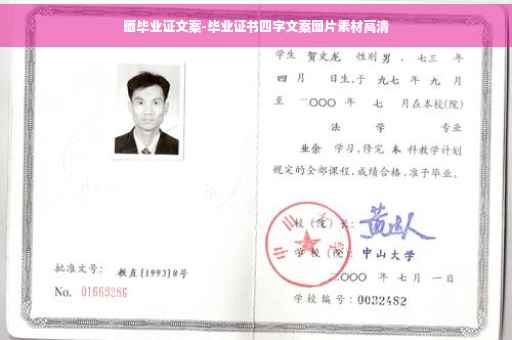 晒毕业证文案-毕业证书四字文案图片素材高清
学生 贺文龙 性别 男 、七三 年
四 月 日生,于 九七 年 九 月
至 二〇〇〇 年 七 月在本校(院)
法 学 专业
业余 学习,修完 本 科教学计划
规定的全部课程,成绩合格,准予毕业。
校(院)长:
学校(院): 中山大学
二〇〇〇 年 七 月 一 日
学校编号: 0032482
批准文号: 教直[1993]8号
No. 01669286
中山大学